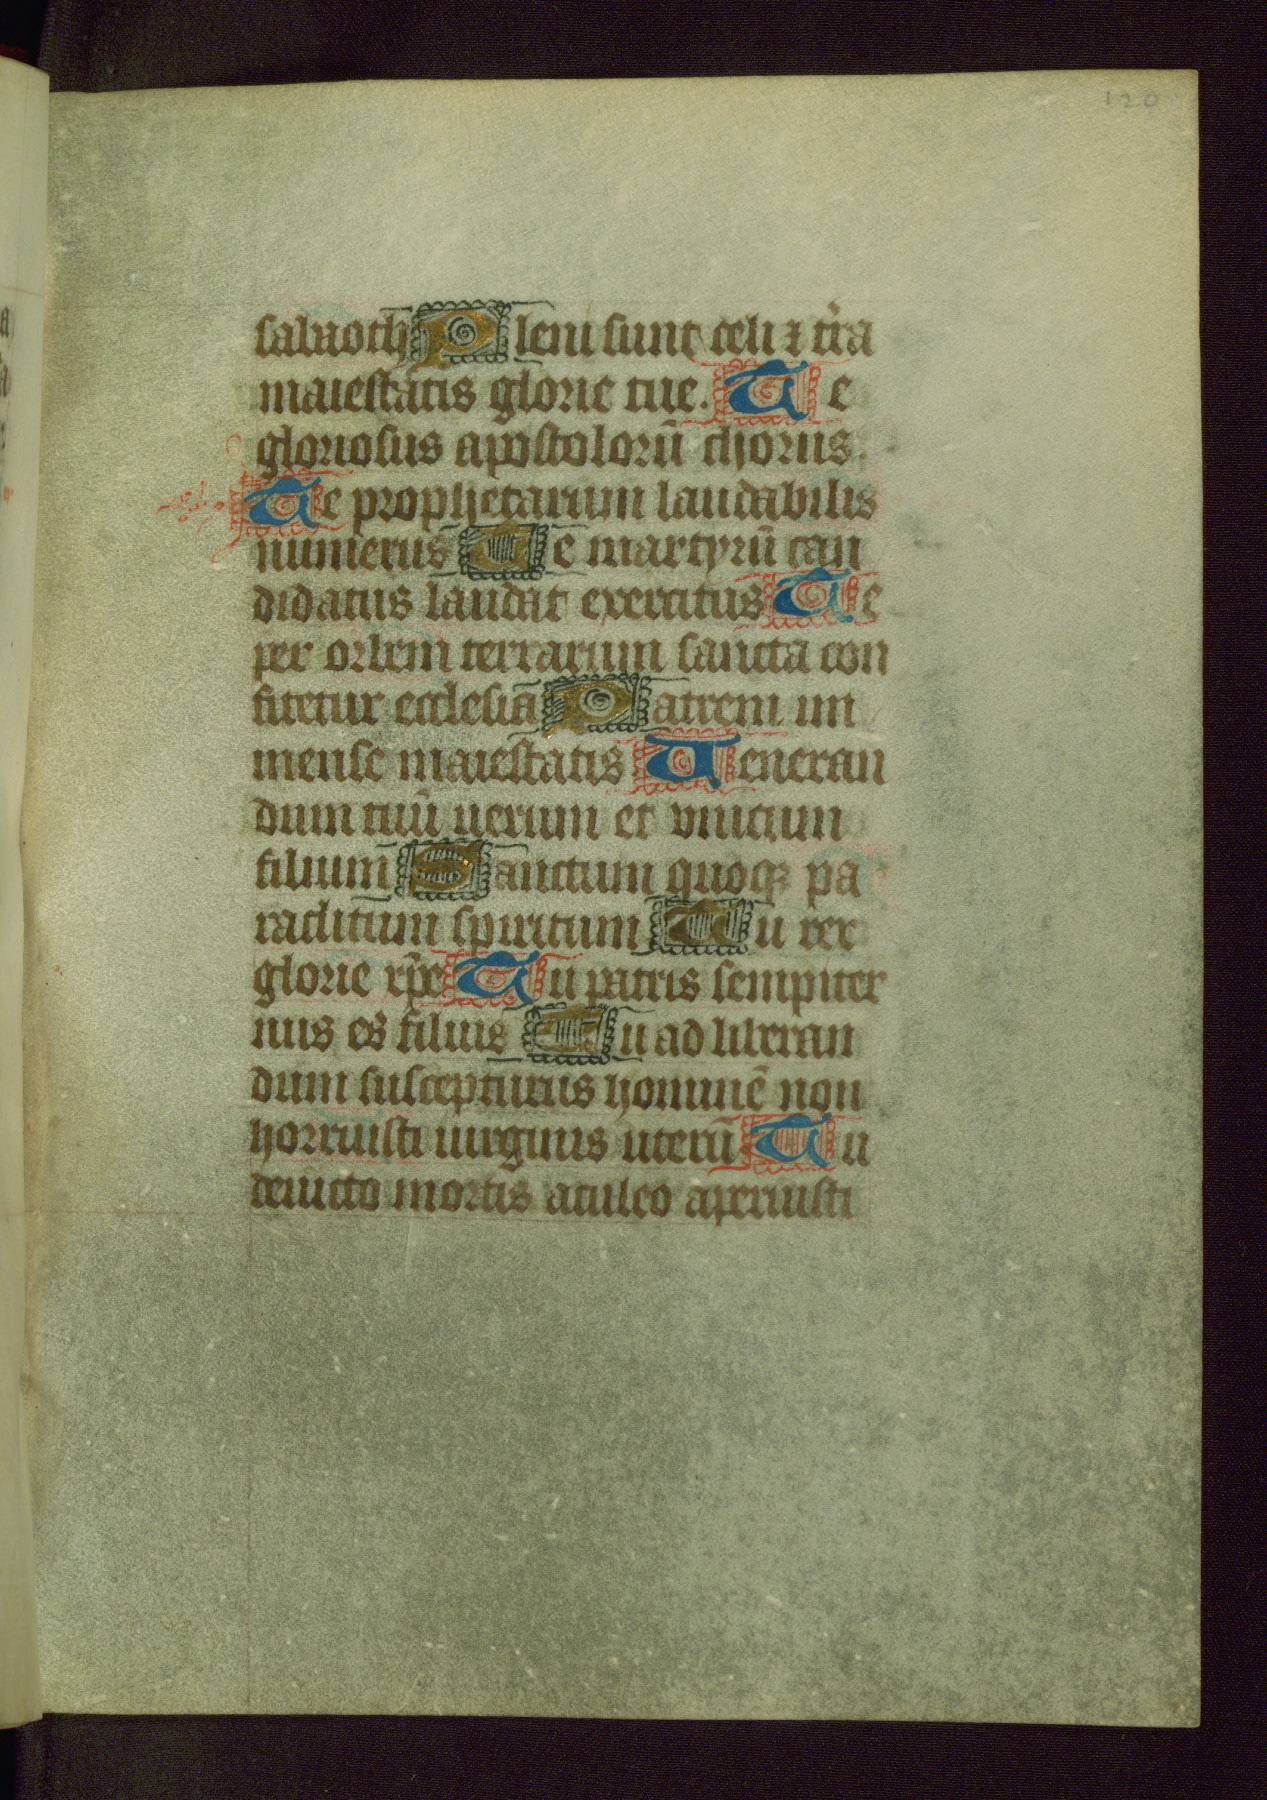 120
sabaoth Pleni sunt celi ⁊ tr̄a
maiestatis glorie tue. Te
gloriosus apostolorū chorus.
Te prophetarum laudabilis
numerus Te martyrū can
didatus laudat exercitus Te
per orbem terrarum sancta con
fitetur ecclesia Patrem im
mense maiestatis Veneran
dum tuū uerum et vnicum
filium Sanctum quoqꝫ pa
raclitum spiritum Tu rex
glorie xp̄e Tu patris sempiter
nus es filius Tu ad liberan
dum suscepturus hominē non
horruisti uirginis uterū Tu
deuicto mortis aculeo aperuisti